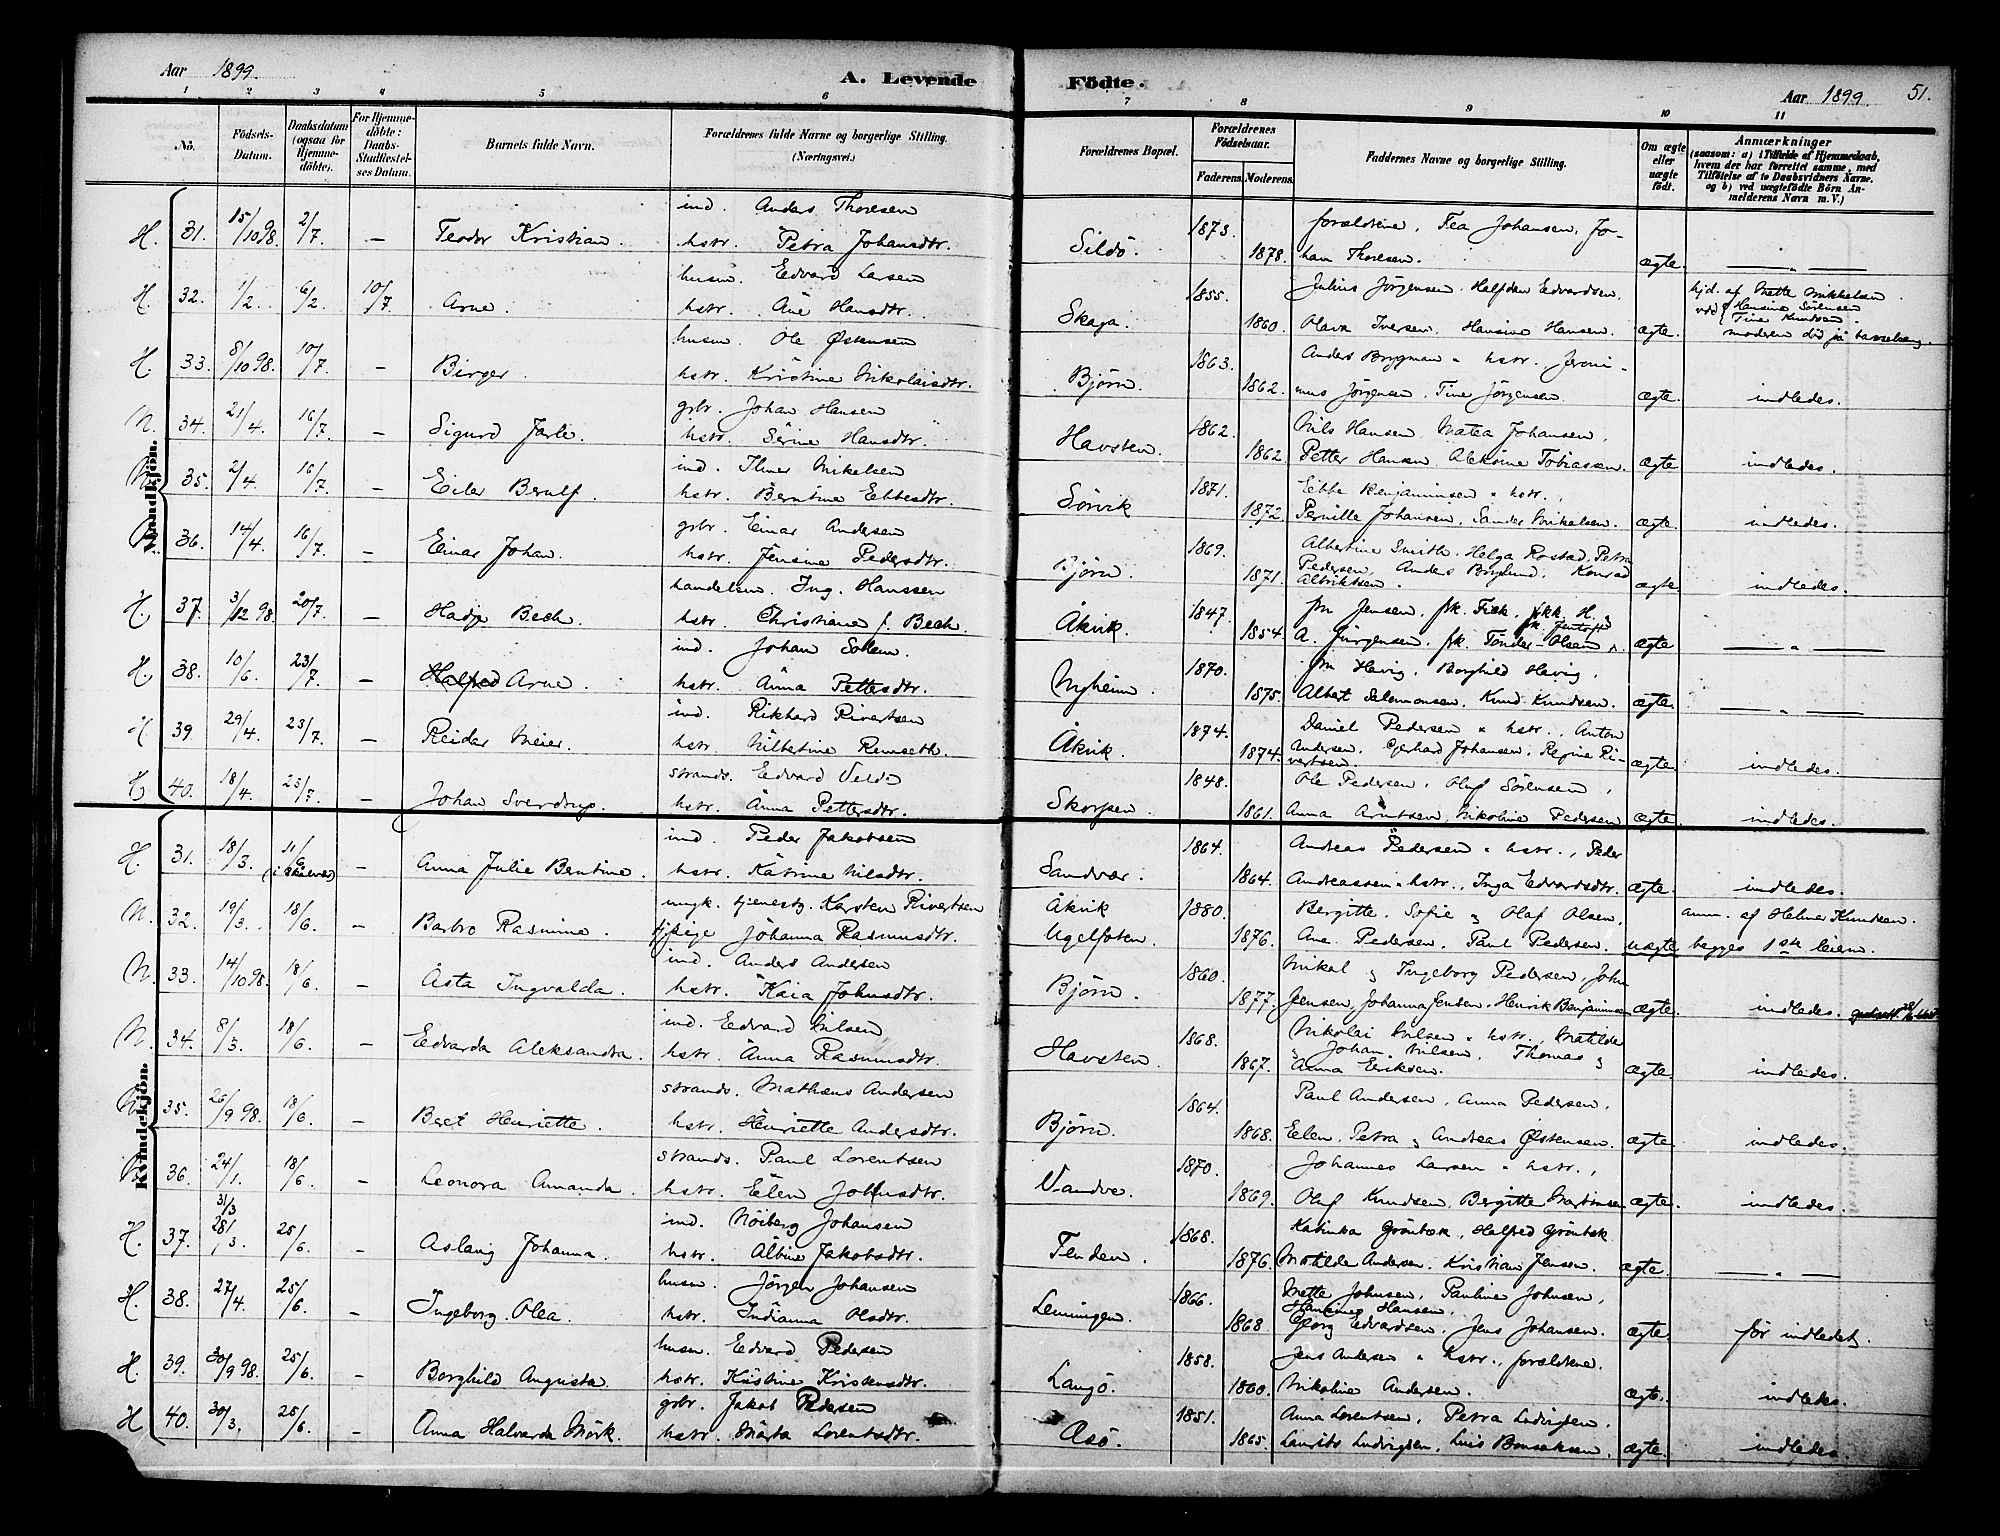 Aar 1899. A. Levende Födte. Aar 1899. 51.
1 2 3 4 5 6 7 8 9 10 11
No. Födsels-Datum. Daabsdatum (ogsaa for Hjemme-döbte). For Hjemme-döbte: Daabs-Stadfæstel-ses Datum. Barnets fulde Navn. Forældrenes fulde Navne og borgerlige Stilling. (Næringsvei.) Forældrenes Bopæl. Forældrenes Födselsaar. Faderens. Moderens. Faddernes Navne og borgerlige Stilling. Om ægte eller uægte födt. Anmærkninger (saasom: a) i Tilfælde af Hjemmedaab, hvem der har forrettet samme, med Tilföielse af to Daabsvidners Navne, og b) ved uægtefödte Börn Anmelderens Navn m. V.)
Mandkjön.
ind. Anders Thoresen 1873. forældrene, Tea Johansen, Jo-
H. 31. 15/10 98. 2/7 – Teodor Kristian. hstr. Petra Johansdtr. Sildö. 1878. han Thoresen. ægte. — „ —
husm. Edvard Larsen 1855. Julius Jörgensen, Halfdan Edvardsen, hjd. af Mette Mikkelsen
H. 32. 1/2 6/2 10/7 Arne. hstr. Ane Hansdtr. Skaga. 1860. Olava Iversen, Hansine Hansen. ægte. ved Hansine Sörensen Tine Knudsen. moderen död på barselseng.
husm. Ole Østensen 1863. Anders Brygman & hstr. Jeroni-
H. 33. 8/10 98. 10/7 – Birger. hstr. Kristine Nikolaisdtr. Bjørn. 1862. mus Jörgensen, Tine Jörgensen. ægte. indledes.
grbr. Johan Hansen 1862. Nils Hansen, Matea Johansen,
N. 34. 21/4. 16/7 – Sigurd Jarle. hstr. Serine Hansdtr. Havsten. 1862. Petter Hansen, Aleksine Tobiassen. ægte indledes.
ind. Ilmer Mikelsen 1871. Ebbe Benjaminsen & hstr.,
N. 35. 2/4 16/7 – Eiler Berulf. hstr. Berntine Ebbesdtr. Sörvik 1872. Pernille Johansen, Sander Mikelsen. ægte. indledes.
grbr. Einar Andersen 1869. Albertine Smith, Helga Rostad, Petra
N. 36. 14/4. 16/7 – Einar Johan. hstr. Jensine Pedersdtr. Bjørn. 1871. Pedersen, Anders Borglund, Konrad Albriktsen. ægte indledes.
handelsm. Ing. Hanssen 1847. fru Jensen, frk. Fick, frk. H. &
H. 37. 3/12 98 20/7 – Hadje Bech. hstr. Christiane f. Bech. Åkvik. 1854. A. Jürgensen, frk. Tönder-Olsen, frk. Jentoft ægte — „ —
ind. Johan Solem. 1870. fru Havig, Borghild Havig,
H. 38. 10/6. 23/7 – Halfred Arne. hstr. Anna Pettersdtr. Nyheim. 1875. Albert Salomonsen, Knud Knudsen. ægte. — „ —
ind. Rikhard Rivertsen 1874. Daniel Pedersen & hstr., Anton
H 39 29/4. 23/7 – Reidar Meier. hstr. Nilbertine Remseth. Åkvik. 1874. Andersen, Gerhard Johansen, Regine Ri-vertsen. ægte. indledes.
strands. Edvard Velde 1848. Ole Pedersen, Oluf Sörensen,
H 40. 18/4. 23/7 – Johan Sverdrup. hstr. Anna Pettersdtr. Skorpen. 1861. Anna Arntsen, Nikoline Pedersen ægte. indledes.
Kvindekjön.
ind. Peder Jakobsen 1864. Andreas Pedersen & hstr., Peder
H. 31. 18/3. 11/6 – Anna Julie Bentine. hstr. Katrine Nilsdtr. Sandvær. 1864. Andreassen & hstr., Inga Edvardsdtr. ægte. indledes.
ungk. tjenestg. Karsten Rivertsen Åkvik 1880. Bergitte, Sofie & Olaf Olsen, anm. af Helmer Knudsen.
N. 32. 19/3. 18/6. – Barbro Rasmine. tjpige Johanna Rasmusdtr. Ugelfoten. 1876. Ane Pedersen, Paul Pedersen. uægte begges 1ste leiem.
ind. Anders Andersen 1860. Mikal & Ingeborg Pedersen, John
N. 33. 14/10 98. 18/6. – Asta Ingvalda. hstr. Kaia Johnsdtr. Bjørn. 1877. Jensen, Johanna Jensen, Henrik Benjaminsen ægte. indledes.
ind. Edvard Nilsen 1868. Nikolai Nilsen & hstr., Matilde
N. 34. 8/3. 18/6. – Edvarda Aleksandra. hstr. Anna Rasmusdtr. Havsten. 1867. & Johan Nilsen, Thomas & Anna Eriksen. ægte. indledes.
strands. Mathæus Andersen 1864. Paul Andersen, Anna Pedersen,
N. 35. 26/9 98. 18/6. – Beret Henriette. hstr. Henriette Andersdtr. Bjørn. 1868. Elen, Petra & Andreas Østensen. ægte. indledes.
strands. Paul Lorentsen 1870. Johannes Larsen & hstr.,
N. 36. 24/1. 18/6. – Leonora Amanda. hstr. Elen Johnsdtr. Vandve. 1869. Oluf Knudsen, Bergitte Martinsen ægte. indledes.
31/3 ind. Nöiberg Johansen 1868. Katinka Grönbæk, Halfred Grönbæk
H. 37. 28/3. 25/6. – Aslaug Johanna. hstr. Albine Jakobsdtr. Tenden. 1876. Matilde Andersen, Kristian Jensen. ægte. — „ —
husm. Jörgen Johansen 1866. Mette Johnsen, Pauline Johnsen, Hansine Hansen,
H. 38. 27/4. 25/6. – Ingeborg Olea. hstr. Indianna Olsdtr. Leiningen. 1868 Georg Edvardsen, Jens Johansen. ægte. før indledet.
husm. Edvard Pedersen 1858. Jens Andersen & hstr., forældrene.
H. 39. 30/9 98. 25/6. – Borghild Augusta. hstr. Kristine Kristensdtr. Langö. 1860. Nikoline Andersen. ægte. indledes.
grbr. Jakob Pedersen 1851. Anna Lorentsen, Petra Ludvigsen,
H 40. 30/3. 25/6. – Anna Halvarda Mörk. hstr. Marta Lorentsdtr. Åsö. 1865. Laurits Ludvigsen, Luis Bonsaksen. ægte. indledes.